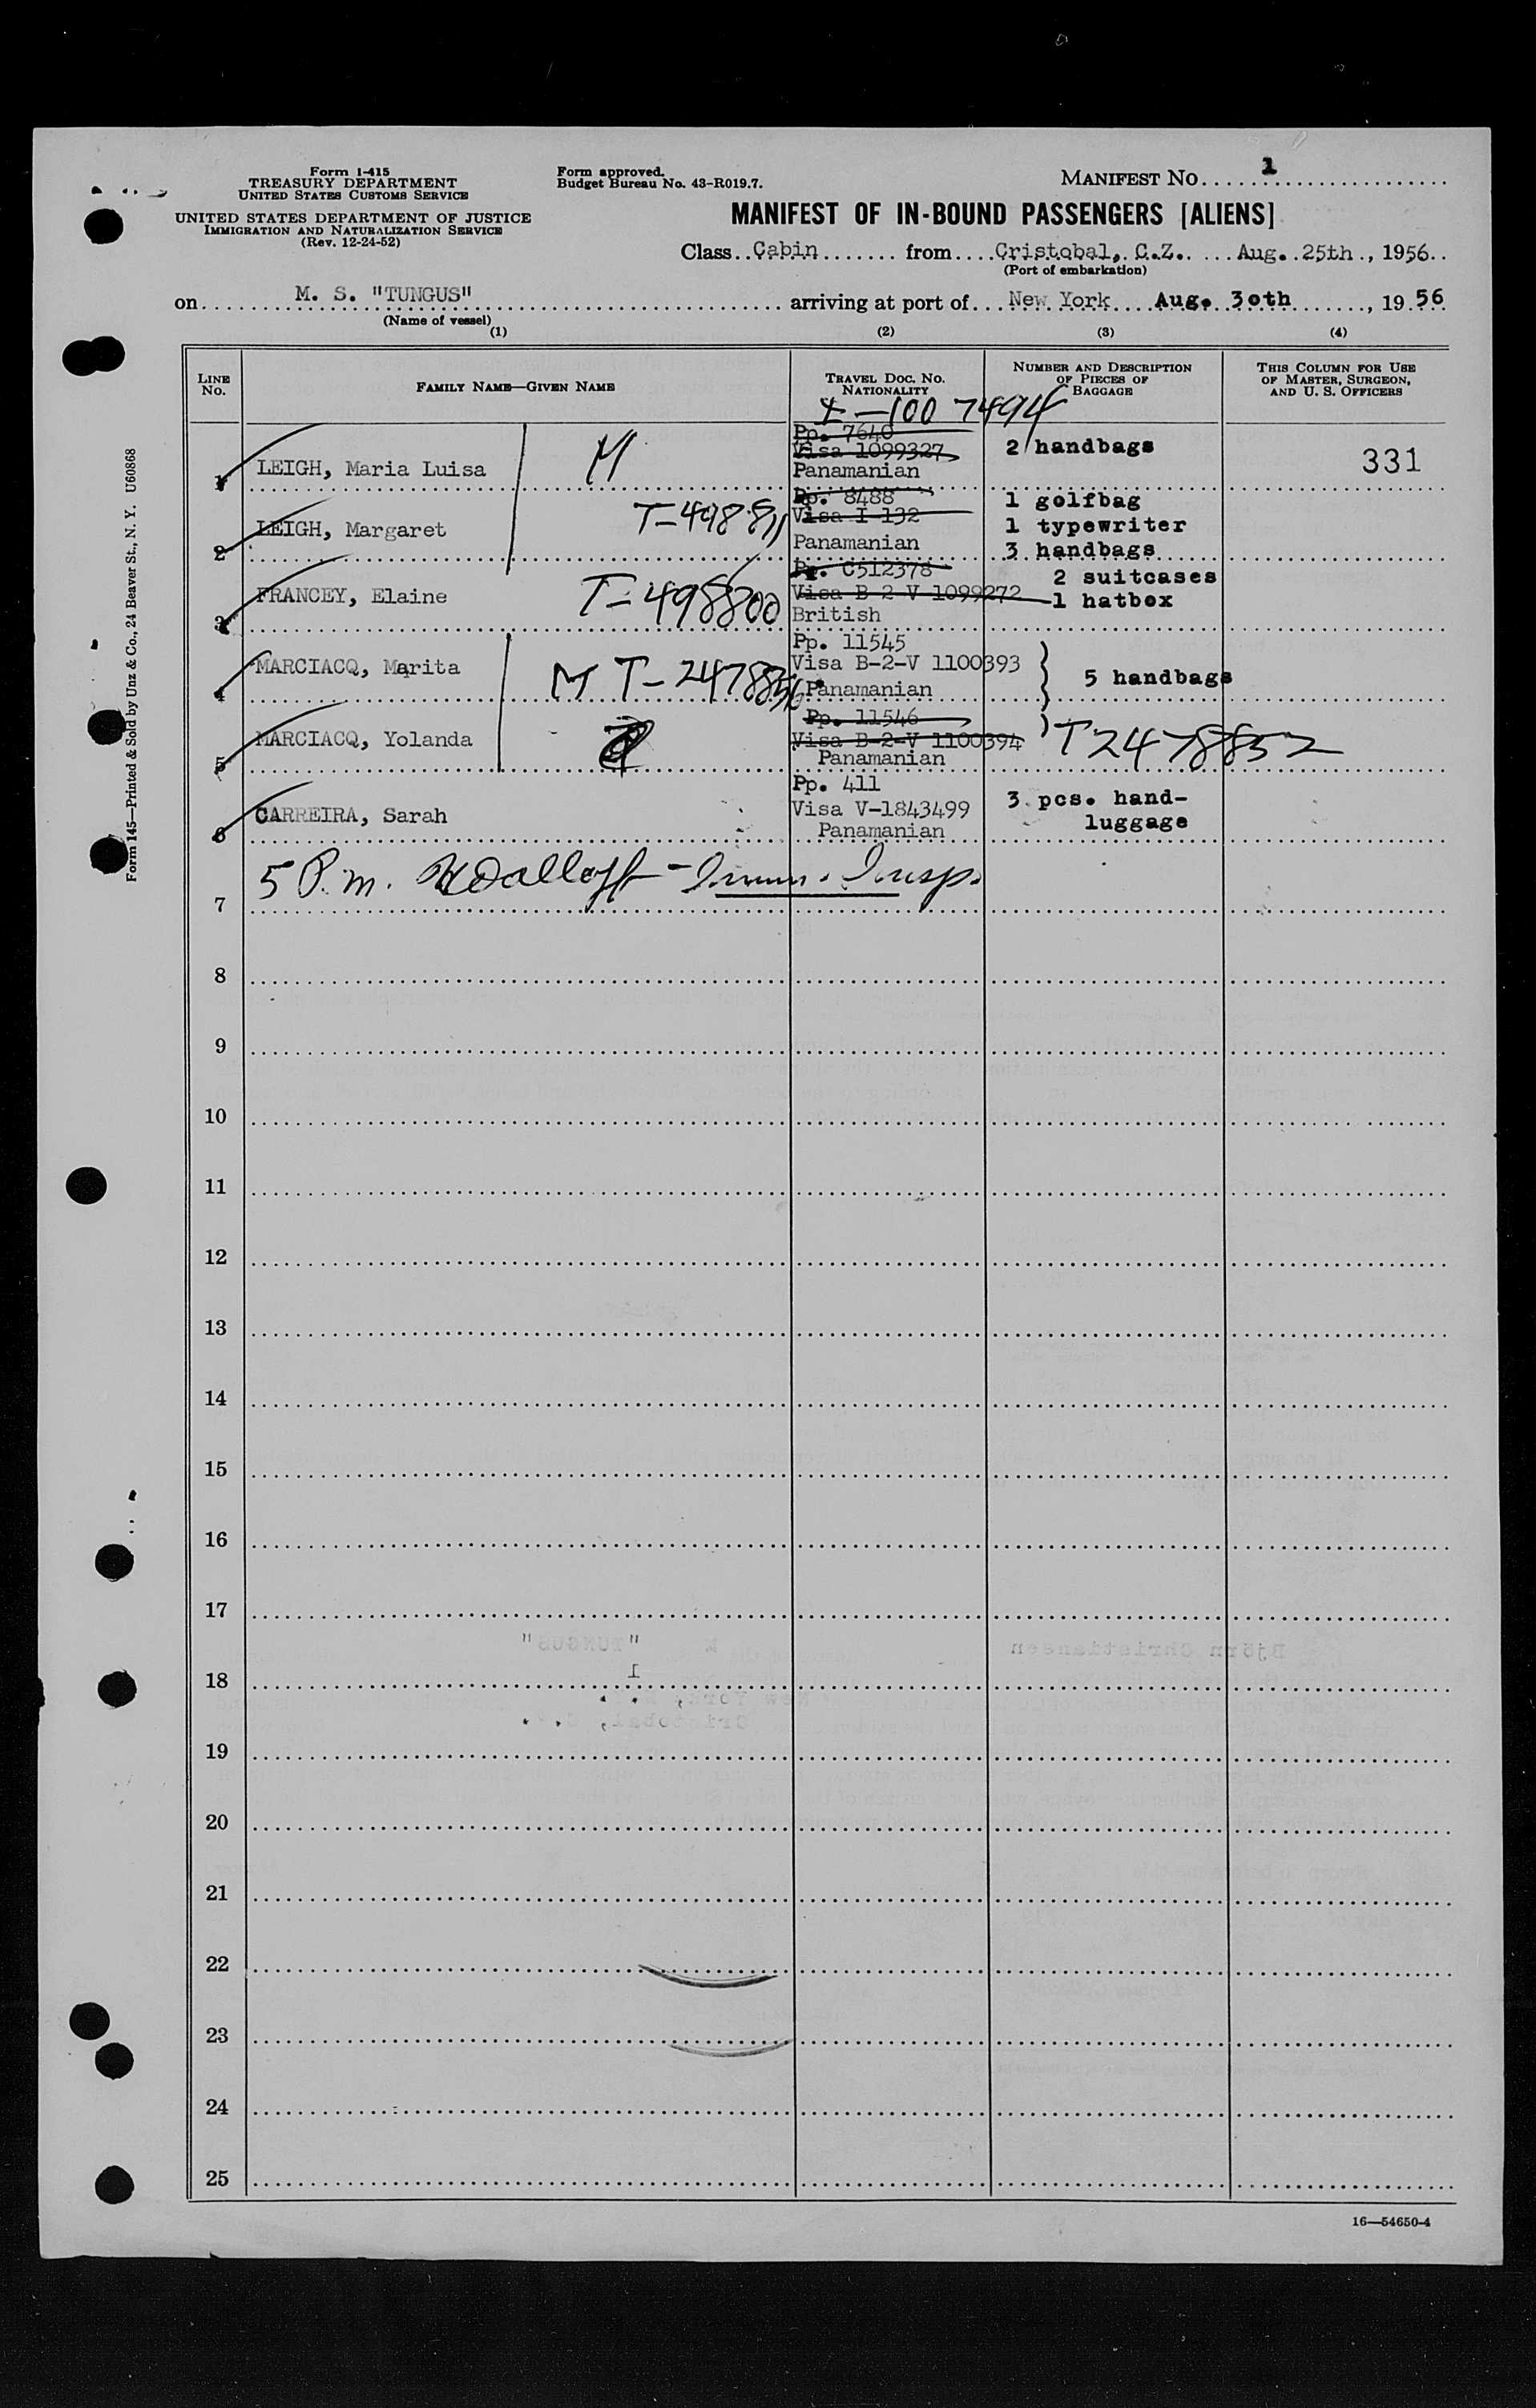 Form I-415
TREASURY DEPARTMENT
UNITED STATES CUSTOMS SERVICE
UNITED STATES DEPARTMENT OF JUSTICE
IMMIGRATION AND NATURALIZATION SERVICE
(Rev. 12-24-52)
Form approved.
Budget Bureau No. 43-R019.7.
MANIFEST NO. 1
MANIFEST OF IN-BOUND PASSENGERS [ALIENS]
Class Cabin from Cristobal, C.Z. Aug. 25th, 1956
(Port of embarkation)
on M. S. "TUNGUS" arriving at port of New York Aug. 30th, 19 56
(Name of vessel)
(1) (2) (3) (4)
LINE No.
FAMILY NAME—GIVEN NAME
TRAVEL DOC. NO. NATIONALITY
NUMBER AND DESCRIPTION OF PIECES OF BAGGAGE
THIS COLUMN FOR USE OF MASTER, SURGEON, AND U. S. OFFICERS
-100 7494
Pp. 7640
Visa 1099327
1 LEIGH, Maria Luisa M Panamanian 2 handbags 331
Pp. 8488
Visa I-132
2 LEIGH, Margaret Panamanian
1 golfbag
1 typewriter
3 handbags
Pp. C512378
Visa B-2-V 1099272
3 FRANCEY, Elaine T-498800 British
2 suitcases
1 hatbox
Pp. 11545
Visa B-2-V 1100393
4 MARCIACQ, Marita M Panamanian 5 handbags
Pp. 11546
Visa B-2-V 1100394
5 MARCIACQ, Yolanda Panamanian T2478852
Pp. 411
Visa V-1843499
6 CARREIRA, Sarah Panamanian
3 pcs. hand-
luggage
7 5 P.m. Imm. Insp.
8
9
10
11
12
13
14
15
16
17
18
19
20
21
22
23
24
25
16—54650-4
Form 145—Printed & Sold by Unz & Co., 24 Beaver St., N. Y. U60868